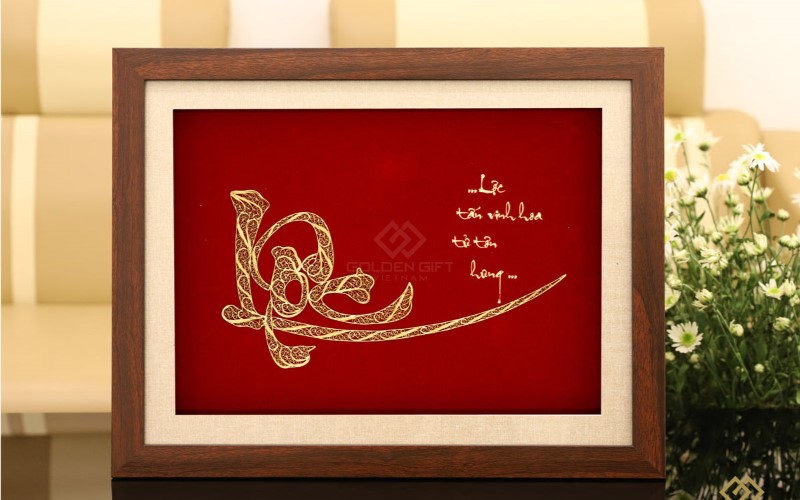 Lộc
...Lộc
tấn vinh hoa
tử tôn
hưng...
GOLDEN GIFT
VIETNAM